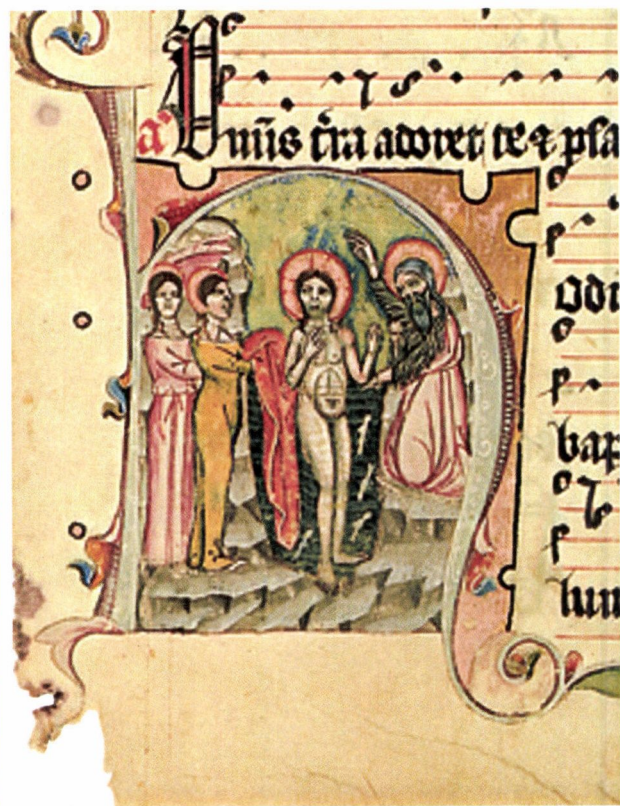 a Om̄is t̄ra adoret te ⁊ psa
Hodi
bap
lum